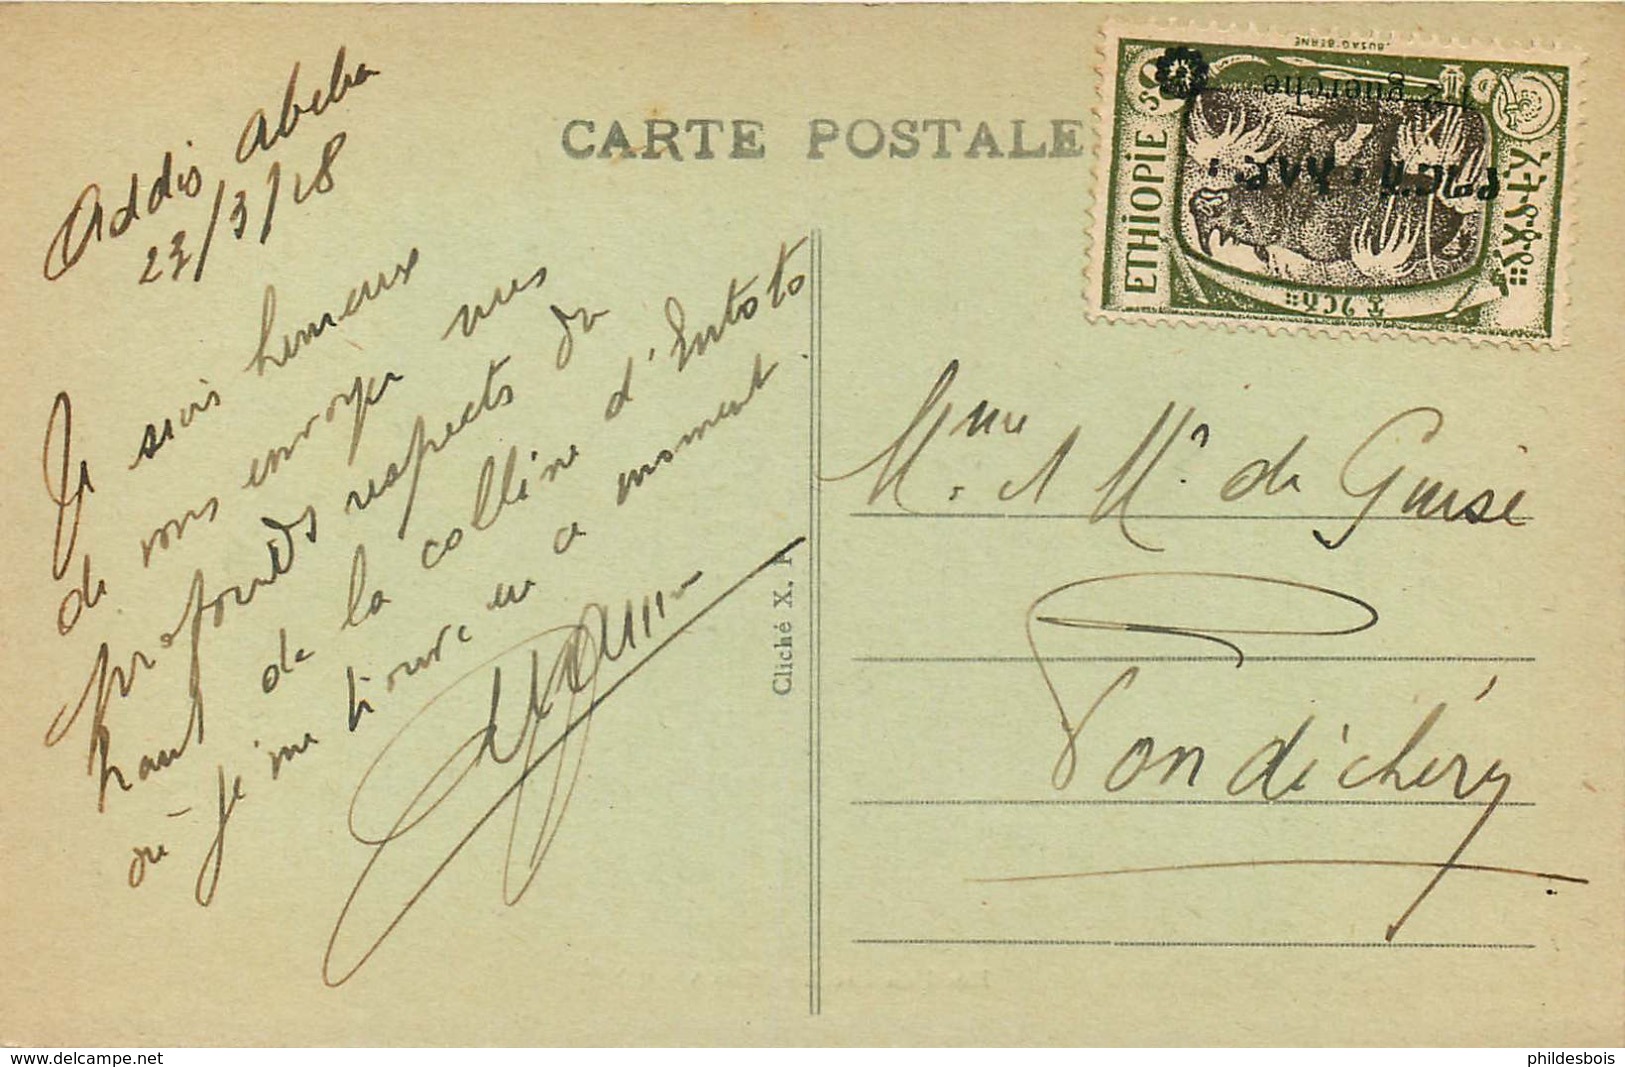 Addis Abeba
27/3/28
CARTE POSTALE
Je suis heureux
de vous envoyer mes
profonds respects du
haut de la colline d'Entoto
où je me trouve en ce moment.
Cliché X. P
Mme et Mr. de Guise
Pondichéry
ETHIOPIE
guerche
BUSAG BERNE
www.delcampe.net
phildesbois